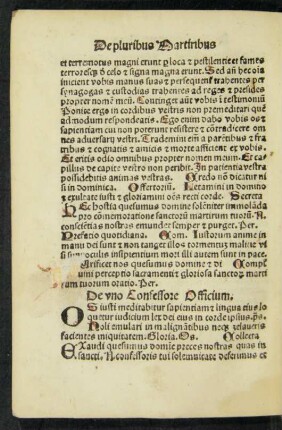 De pluribus Martiribus
et terremotus magni erunt ꝑ loca ⁊ pestilentie et fames
terroresq̃ d̕ celo ⁊ signa magna erunt. Sed añ hec oĩa
iniicient vobis manus suas ⁊ persequent᷑ trahentes per
synagogas ⁊ custodias trahentes ad reges ⁊ presides
propter nomẽ meũ. Continget aũt vobis ĩ testimoniũ
Ponite ergo in cordibus vestris non premeditari quẽ
admodum respondeatis. Ego enim dabo vobis os ⁊
sapientiam cui non poterunt resistere ⁊ cõtradicere om
nes aduersarij vestri. Trademini em̃ a parẽtibus ⁊ fra
tribus ⁊ cognatis ⁊ amicis ⁊ morte afficient ex vobis.
Et eritis odio omnibus propter nomen meum. Et ca
pillus de capite vestro non peribit. In pacientia vestra
possidebitis animas vestras. Credo nõ dicitur ni
si in dominica. Offertoriũ. Letamini in domino
⁊ exultate iusti ⁊ gloriamini oẽs recti corde. Secreta
Hec hostia quesumus domine solẽniter immolãda
pro cõmemoratione sanctorũ martirum tuorũ. N.
consciẽtias nostras emundet semper ⁊ purget. Per.
Prefatio quotidiana. Com. Iustorum anime in
manu dei sunt ⁊ non tanget illos tormentuz malitie vi
si sunt oculis insipientium mori illi autem sunt in pace.
nos quesumus domine ⁊ Compl̕
uini perceptio sacramenti ⁊ gloriosa sanctoꝝ marti
rum tuorum oratio. Per.
De vno Confessore Officium.
Os iusti meditabitur sapientiam ⁊ lingua eius lo
quetur iudicium lex dei eius in corde ipsius. p̃s.
Noli emulari in malignãtibus neqꝫ zelaueris
facientes iniquitatem. Gloria. Os. Collecta
Exaudi quesumus domine preces nostras quas in
sancti. N. confessoris tui solennitate deferimus et